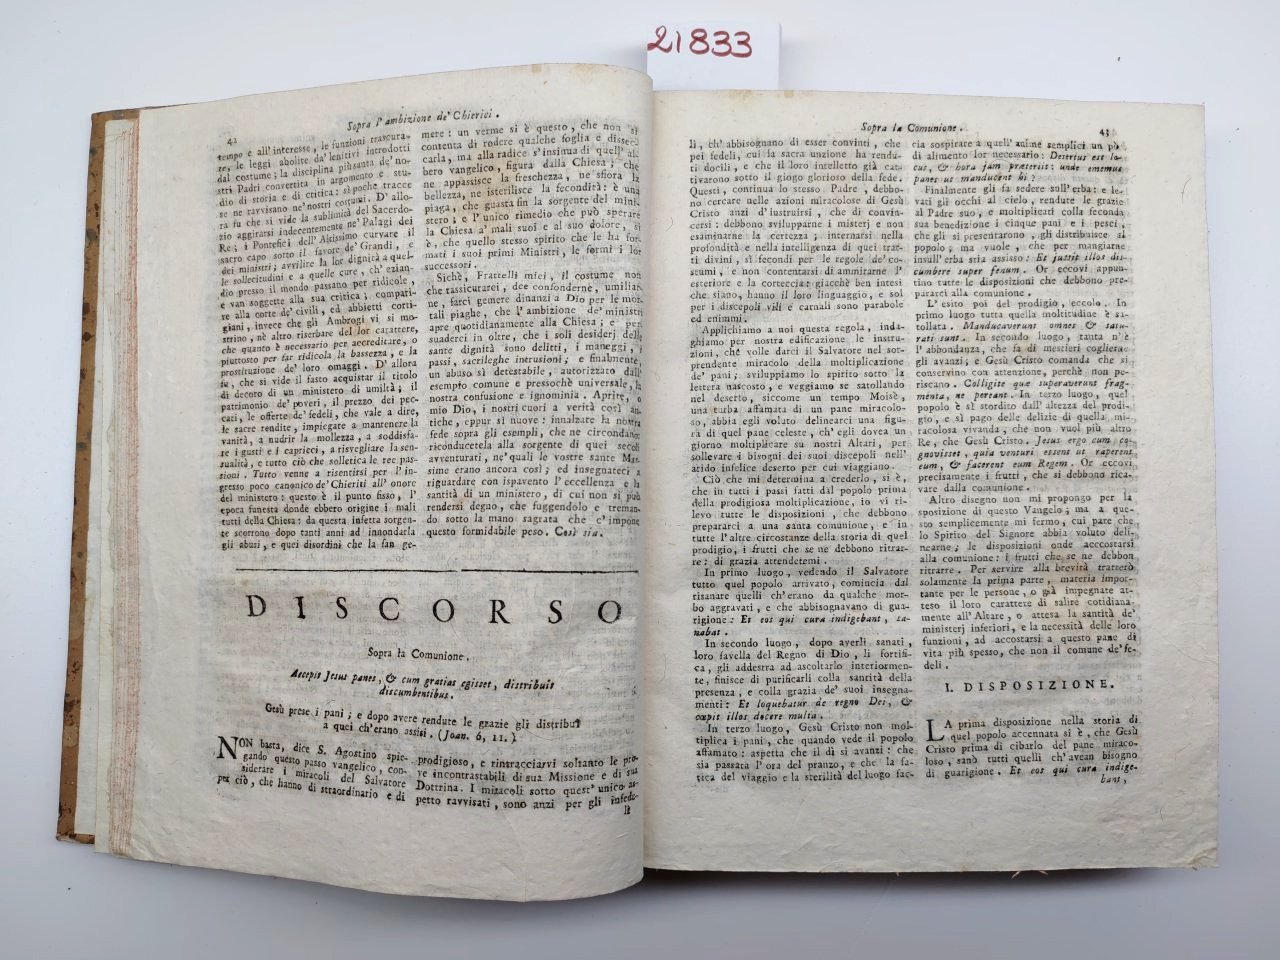 21833
42
Sopra l'ambizione de' Chierici.
tempo e all'interesse, le funzioni trascura-
te, le leggi abolite da' lenitivi introdotti
dal costume; la disciplina più santa de' no-
stri Padri convertita in argomento e stu-
dio di storia e di critica: sì poche tracce
se ne ravvisano ne' nostri costumi. D' allo-
ra fu che si vide la sublimità del Sacerdo-
zio aggirarsi indecentemente ne' Palagi dei
Re; i Pontefici dell' Altissimo curvare il
sacro capo sotto il favore de' Grandi, e
dei ministri; avvilire la lor dignità a quel-
le sollecitudini e a quelle cure, ch' ezian-
dio presso il mondo passano per ridicole,
e van soggette alla sua critica; compari-
re alla corte de' civili, ed abbietti corti-
giani, invece che gli Ambrogi vi si mo-
strino, nè altro riserbare del lor carattere,
che quanto è necessario per accreditare, o
piuttosto per far ridicola la bassezza, e la
prostituzione de' loro omaggi. D' allora
fu, che si vide il fasto acquistar il titolo
di decoro di un ministero di umiltà; il
patrimonio de' poveri, il prezzo dei pec-
cati, le offerte de' fedeli, che vale a dire,
le sacre rendite, impiegate a mantenere la
vanità, a nudrir la mollezza, a soddisfa-
re i gusti e i capricci, a risvegliare la sen-
sualità, e tutto ciò che solletica le ree pas-
sioni. Tutto venne a risentirsi per l' in-
gresso poco canonico de' Chieriti all' onore
del ministero: questo è il punto fisso, l'
epoca funesta donde ebbero origine i mali
tutti della Chiesa: da questa infetta sorgen-
te scorrono dopo tanti anni ad innondarla
gli abusi, e quei disordini che la fan ge-
mere: un verme si è questo, che non si
contenta di rodere qualche foglia e disec-
carla, ma alla radice s'insinua di quell' al-
bero vangelico, figura dalla Chiesa; che
ne appassisce la freschezza, ne sfiora la
bellezza, ne isterilisce la fecondità: è una
piaga, che guasta fin la sorgente del mini-
stero; e l' unico rimedio che può sperare
la Chiesa a' mali suoi e al suo dolore, si
è, che quello stesso spirito che le ha for-
mati i suoi primi Ministri, le formi i lor
successori.
Sichè, Frattelli miei, il costume non
che rassicurarci, dee confonderne, umiliar-
ne, farci gemere dinanzi a Dio per le mor-
tali piaghe, che l' ambizione de' ministri
apre quotidianamente alla Chiesa; e per-
suaderci in oltre, che i soli desiderj delle
sante dignità sono delitti, i maneggi, i
passi, sacrileghe intrusioni; e finalmente,
un abuso sì detestabile, autorizzato dall'
esempio comune e pressochè universale, la
nostra confusione e ignominia. Aprite, o
mio Dio, i nostri cuori a verità così an-
tiche, eppur sì nuove: innalzate la nostra
fede sopra gli esempli, che ne circondano:
riconducetela alla sorgente di quei secoli
avventurati, ne' quali le vostre sante Mas-
sime erano ancora così; ed insegnateci a
riguardare con ispavento l' eccellenza e la
santità di un ministero, di cui non si può
rendersi degno, che fuggendolo e treman-
do sotto la mano sagrata che c' impone
questo formidabile peso. Così sia.
DISCORSO
Sopra la Comunione.
Accepit Jesus panes, & cum gratias egisset, distribuit
discumbentibus.
Gesù prese i pani; e dopo avere rendute le grazie gli distribuì
a quei ch'erano assisi. (Joan. 6, 11.)
NON basta, dice S. Agostino spie-
gando questo passo vangelico, con-
siderare i miracoli del Salvatore
per ciò, che hanno di straordinario e di
prodigioso, e rintracciarvi soltanto le pro-
ve incontrastabili di sua Missione e di sua
Dottrina. I miracoli sotto quest' unico as-
petto ravvisati, sono anzi per gli infede-
li
Sopra la Comunione.
43
li, ch' abbisognano di esser convinti, che
pei fedeli, cui la sacra unzione ha rendu-
ti docili, e che il loro intelletto già cat-
tivarono sotto il giogo glorioso della fede.
Questi, continua lo stesso Padre, debbo-
no cercare nelle azioni miracolose di Gesù
Cristo anzi d'istruirsi, che di convin-
cersi: debbono svilupparne i misterj e non
esaminarne la certezza; internarsi nella
profondità e nella intelligenza di quei trat-
ti divini, sì fecondi per le regole de' co-
stumi, e non contentarsi di ammirarne l'
esteriore e la corteccia: giacchè ben intesi
che siano, hanno il loro linguaggio, e sol
per i discepoli vili e carnali sono parabole
ed enimmi.
Applichiamo a noi questa regola, inda-
ghiamo per nostra edificazione le instru-
zioni, che volle darci il Salvatore nel sor-
prendente miracolo della moltiplicazione
de' pani; sviluppiamo lo spirito sotto la
lettera nascosto, e veggiamo se satollando
nel deserto, siccome un tempo Moisè,
una turba affamata di un pane miracolo-
so, abbia egli voluto delinearci una figu-
ra di quel pane celeste, ch' egli dovea un
giorno moltiplicare su nostri Altari, per
sollevare i bisogni dei suoi discepoli nell'
arido infelice deserto per cui viaggiano.
Ciò che mi determina a crederlo, si è,
che in tutti i passi fatti dal popolo prima
della prodigiosa moltiplicazione, io vi ri-
levo tutte le disposizioni, che debbono
prepararci a una santa comunione, e in
tutte l'altre circostanze della storia di quel
prodigio, i frutti che se ne debbono ritrar-
re: di grazia attendetemi.
In primo luogo, vedendo il Salvatore
tutto quel popolo arrivato, comincia dal
risanare quelli ch'erano da qualche mor-
bo aggravati, e che abbisognavano di gua-
rigione: Et eos qui cura indigebant, sa-
nabat.
In secondo luogo, dopo averli sanati,
loro favella del Regno di Dio, li fortifi-
ca, gli addestra ad ascoltarlo interiormen-
te, finisce di purificarli colla santità della
presenza, e colla grazia de' suoi insegna-
menti: Et loquebatur de regno Dei, &
cœpit illos docere multa.
In terzo luogo, Gesù Cristo non mol-
tiplica i pani, che quando vede il popolo
affamato: aspetta che il dì si avanzi: che
sia passata l'ora del pranzo, e che la fa-
tica del viaggio e la sterilità del luogo fac-
cia sospirare a quell' anime semplici un pò
di alimento lor necessario: Desertus est lo-
cus, & hora jam præteriit: unde ememus
panes ut manducent hi?
Finalmente gli fa sedere sull'erba: e le-
vati gli occhi al cielo, rendute le grazie
al Padre suo, e moltiplicati colla feconda
sua benedizione i cinque pani e i pesci,
che gli si presentarono, gli distribuisce al
popolo, ma vuole, che per mangiarne
insull'erba stia assisso: Et jussit illos dis-
cumbere super fenum. Or eccovi appun-
tino tutte le disposizioni che debbono pre-
pararci alla comunione.
L'esito poi del prodigio, eccolo. In
primo luogo tutta quella moltitudine è sa-
tollata. Manducaverunt omnes & satu-
rati sunt. In secondo luogo, tanta n'è
l'abbondanza, che fa di mestieri cogliere
gli avanzi; e Gesù Cristo comanda che si
conservino con attenzione, perchè non pe-
riscano. Colligite quæ superaverunt frag-
menta, ne pereant. In terzo luogo, quel
popolo è sì stordito dall'altezza del prodi-
gio, e sì pago delle delizie di quella mi-
racolosa vivanda, che non vuol più altro
Re, che Gesù Cristo. Jesus ergo cum co-
gnovisset, quia venturi essent ut raperent
eum, & facerent eum Regem. Or eccovi
precisamente i frutti, che si debbono rica-
vare dalla comunione.
Altro disegno non mi propongo per la
sposizione di questo Vangelo; ma a que-
sto semplicemente mi fermo, cui pare che
lo Spirito del Signore abbia voluto deli-
nearne; le disposizioni onde acccostarsi
alla comunione: i frutti che se ne debbon
ritrarre. Per servire alla brevità tratterò
solamente la prima parte, materia impor-
tante per le persone, o già impegnate at-
teso il loro carattere di salire cotidiana-
mente all'Altare, o attesa la santità de'
ministerj inferiori, e la necessità delle loro
funzioni, ad accostarsi a questo pane di
vita più spesso, che non il comune de' fe-
deli.
I. DISPOSIZIONE.
LA prima disposizione nella storia di
quel popolo accennata si è, che Gesù
Cristo prima di cibarlo del pane miraco-
loso, sanò tutti quelli ch'avean bisogno
di guarigione. Et eos qui cura indige-
bant,